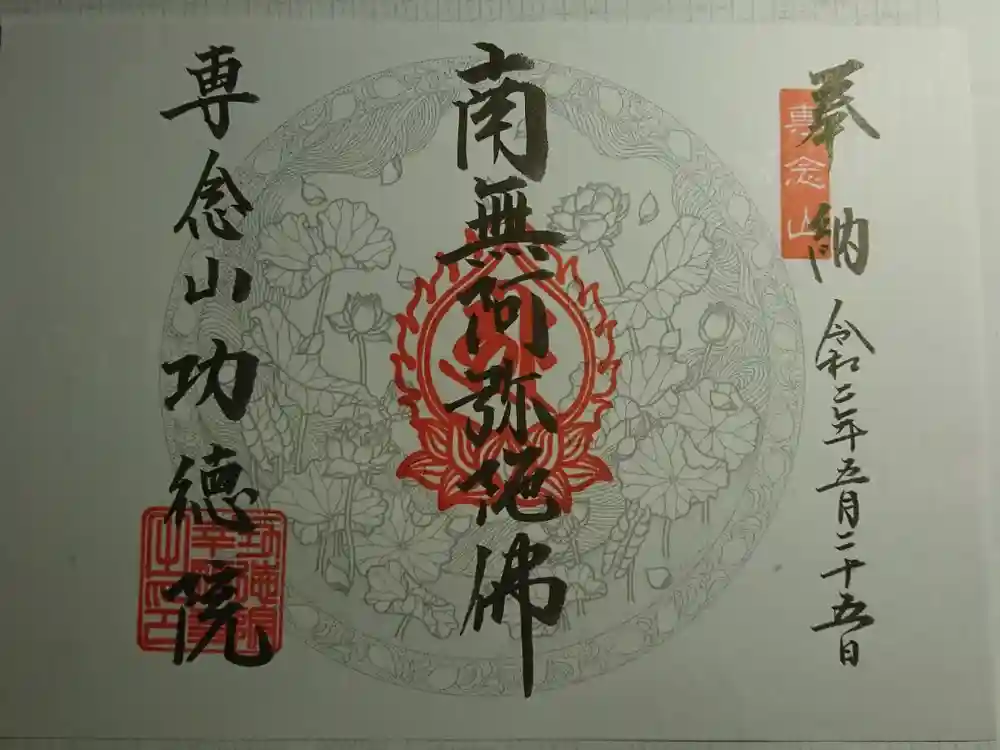 奉納
專念山
令和二年五月二十五日
南無阿弥陀佛
専念山功徳院